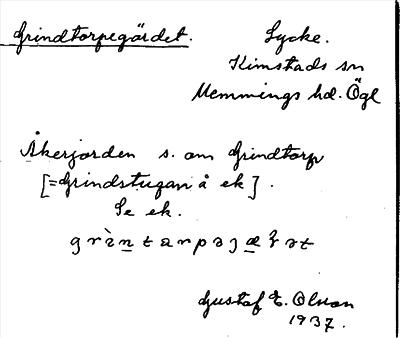 Grindtorpegärdet. Lycke.
Kimstads sn
Memmings hd. Ögl
Åkerjorden s. om Grindtorp
[=Grindstugan å ek].
Se ek.
Gustaf E. Olson
1937.